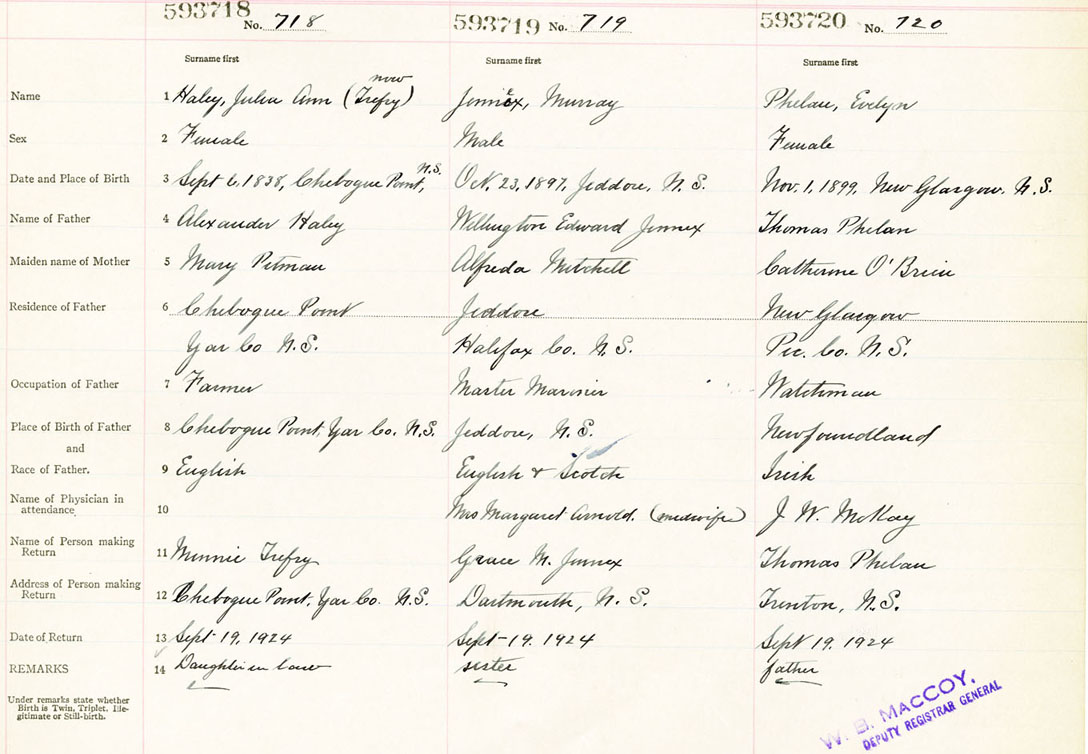 593718 No. 718 593719 No. 719 593720 No. 720
Surname first Surname first Surname first
now
Name 1 Haley, Julia Ann (Trefry) Jennex, Murray Phelan, Evelyn
Sex 2 Female Male Female
Date and Place of Birth 3 Sept 6, 1838, Chebogue Point, N.S. Oct. 23, 1897, Jeddore, N.S. Nov. 1, 1899, New Glasgow, N.S.
Name of Father 4 Alexander Haley Wellington Edward Jennex Thomas Phelan
Maiden name of Mother 5 Mary Pitman Alfreda Mitchell Catherine O'Brien
Residence of Father 6 Chebogue Point Jeddore New Glasgow
Yar Co N.S. Halifax Co. N.S. Pic. Co. N.S.
Occupation of Father 7 Farmer Master Mariner Watchman
Place of Birth of Father 8 Chebogue Point, Yar Co. N.S. Jeddore, N.S. Newfoundland
and
Race of Father. 9 English English & Scotch Irish
Name of Physician in
attendance 10 Mrs Margaret Arnold. (midwife) J. W. McKay
Name of Person making
Return 11 Minnie Trefry Grace M. Jennex Thomas Phelan
Address of Person making
Return 12 Chebogue Point, Yar Co. N.S. Dartmouth, N.S. Trenton, N.S.
Date of Return 13 Sept 19, 1924 Sept 19. 1924 Sept 19. 1924
REMARKS 14 Daughter in law sister father
Under remarks state whether
Birth is Twin, Triplet, Ille-
gitimate or Still-birth.
W. B. MACCOY,
DEPUTY REGISTRAR GENERAL